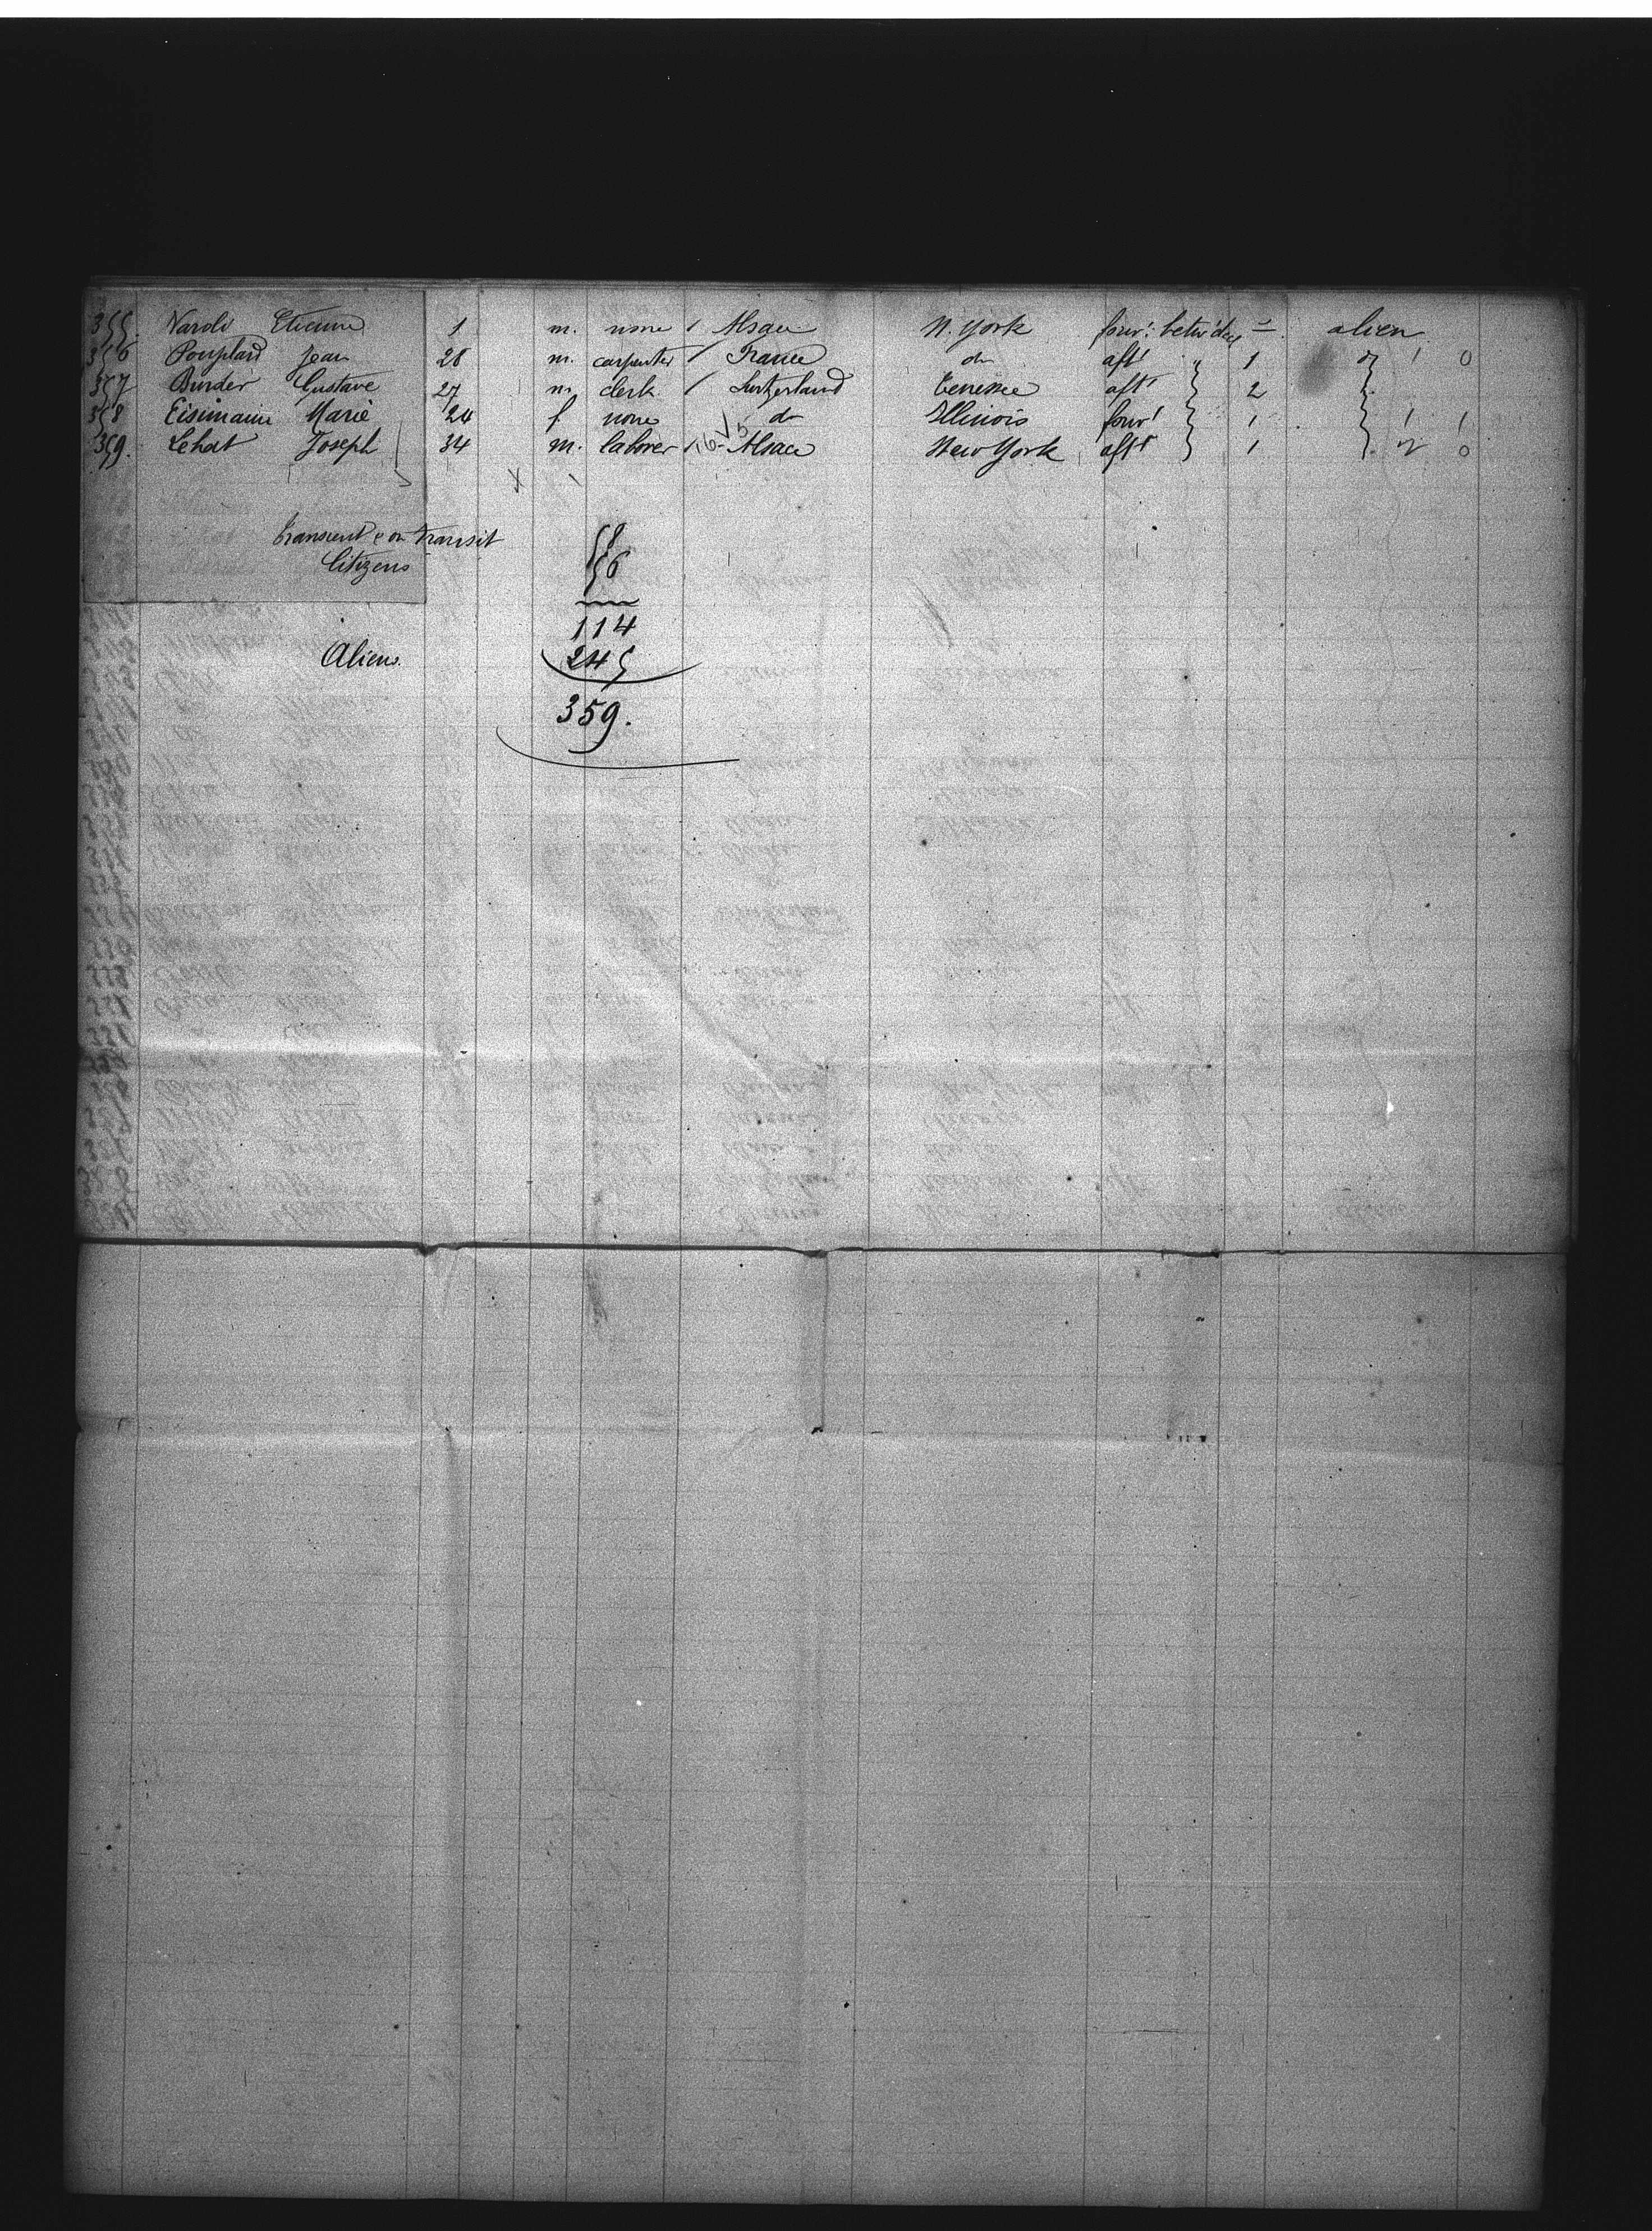 355. Naroli Etienne 1 m. none / Alsace N. York forw: betw deck = alien
356 Pouplard Jean 28 m. carpenter / France do aft 1 1 0
357 Burder Gustave 27 m. clerk / Switzerland Tenessee aft 2
358 Eisimann Marie 24 f none do Illinois forw 1 1 1
359. Lehat Joseph 34 m. laborer / Alsace New York aft 1 0
Transient & on transit 58
Citizens 56
114
Aliens. 245
359.